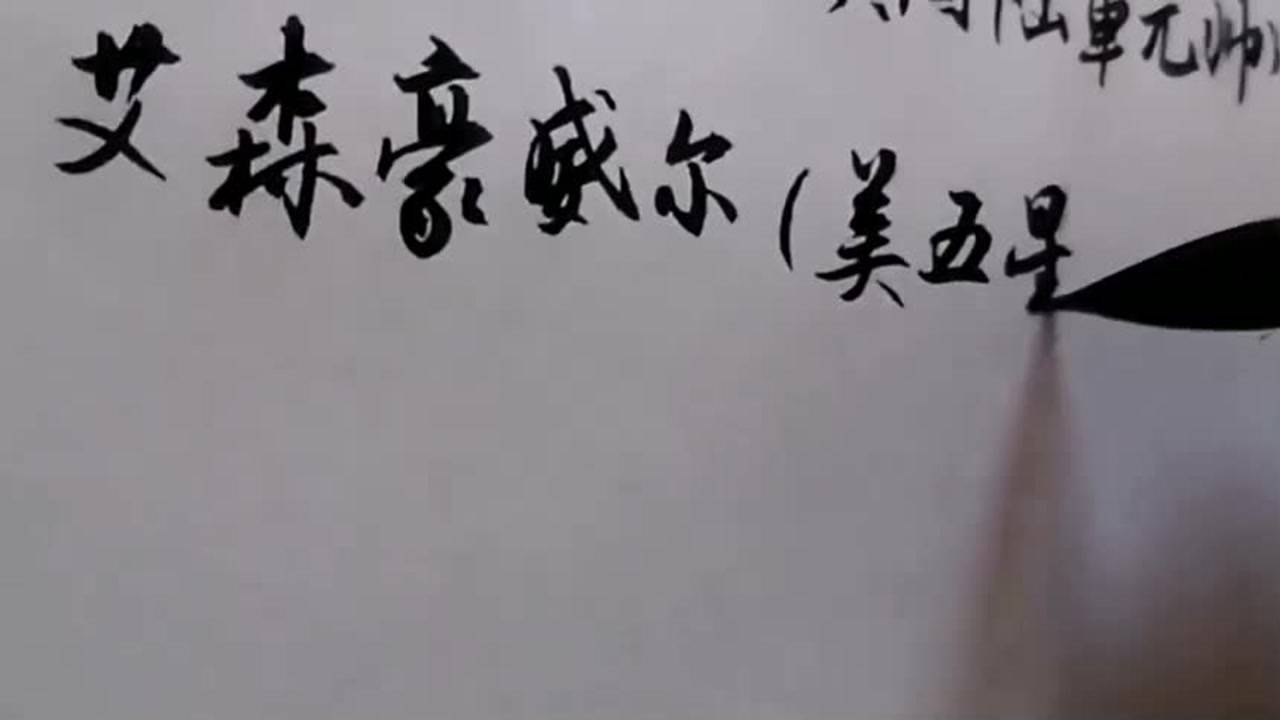 陆军元帅
艾森豪威尔(美五星